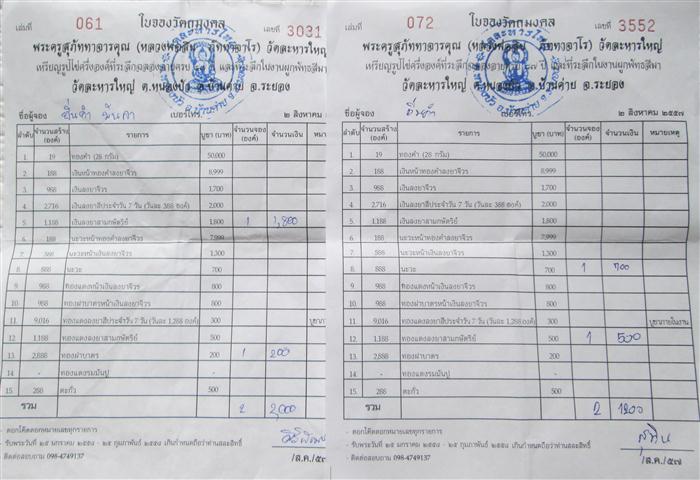 เล่มที่ 061 ใบจองวัตถุมงคล เลขที่ 3031
พระครูสุภัททาจารคุณ (หลวงพ่อสิน ภัททาจาโร) วัดละหารใหญ่
เหรียญรูปไข่ครึ่งองค์ที่ระลึกฉลองอายุครบ ปี และที่ระลึกในงานผูกพัทธสีมา
วัดละหารใหญ่ ต.หนองบัว อ.บ้านค่าย จ.ระยอง
ชื่อผู้จอง เบอร์โทร. ๒ สิงหาคม
ลำดับ จำนวนสร้าง (องค์) รายการ บูชา (บาท) จำนวนจอง (องค์) จำนวนเงิน
1. 19 ทองคำ (28 กรัม) 50,000
2. 188 เงินหน้าทองคำลงยาจีวร 8,999
3. 988 เงินลงยาจีวร 1,700
4. 2,716 เงินลงยาสีประจำวัน 7 วัน (วันละ 388 องค์) 2,000
5. 1,188 เงินลงยาสามกษัตริย์ 1,800 1 1,800
6. 188 นะวะหน้าทองคำลงยาจีวร 7,999
7. 588 นะวะหน้าเงินลงยาจีวร 1,300
8. 888 นะวะ 700
9. 988 ทองแดงหน้าเงินลงยาจีวร 800
10. 988 ทองฝาบาตรหน้าเงินลงยาจีวร 800
11. 9,016 ทองแดงลงยาสีประจำวัน 7 วัน (วันละ 1,288 องค์) 300
12. 1,188 ทองแดงลงยาสามกษัตริย์ 500
13. 2,888 ทองฝาบาตร 200 1 200
14. - ทองแดงรมมันปู -
15. 288 ตะกั่ว 500
รวม 2 2,000
- ตอกโค๊ดตอกหมายเลขทุกรายการ
- รับพระวันที่ ๒๕ มกราคม ๒๕๕๘ - ๒๕ กุมภาพันธ์ ๒๕๕๘ เกินกำหนดถือว่าท่านสละสิทธิ์
- ติดต่อสอบถาม 098-4749137
/ส.ค./๕๗
เล่มที่ 072 ใบจองวัตถุมงคล เลขที่ 3552
พระครูสุภัททาจารคุณ (หลวงพ่อสิน ภัททาจาโร) วัดละหารใหญ่
เหรียญรูปไข่ครึ่งองค์ที่ระลึกฉลองอายุครบ ปี และที่ระลึกในงานผูกพัทธสีมา
วัดละหารใหญ่ ต.หนองบัว อ.บ้านค่าย จ.ระยอง
ชื่อผู้จอง เบอร์โทร. ๒ สิงหาคม ๒๕๕๗
ลำดับ จำนวนสร้าง (องค์) รายการ บูชา (บาท) จำนวนจอง (องค์) จำนวนเงิน หมายเหตุ
1. 19 ทองคำ (28 กรัม) 50,000
2. 188 เงินหน้าทองคำลงยาจีวร 8,999
3. 988 เงินลงยาจีวร 1,700
4. 2,716 เงินลงยาสีประจำวัน 7 วัน (วันละ 388 องค์) 2,000
5. 1,188 เงินลงยาสามกษัตริย์ 1,800
6. 188 นะวะหน้าทองคำลงยาจีวร 7,999
7. 588 นะวะหน้าเงินลงยาจีวร 1,300
8. 888 นะวะ 700 1 700
9. 988 ทองแดงหน้าเงินลงยาจีวร 800
10. 988 ทองฝาบาตรหน้าเงินลงยาจีวร 800
11. 9,016 ทองแดงลงยาสีประจำวัน 7 วัน (วันละ 1,288 องค์) 300 บูชาภายในงาน
12. 1,188 ทองแดงลงยาสามกษัตริย์ 500 1 500
13. 2,888 ทองฝาบาตร 200
14. - ทองแดงรมมันปู -
15. 288 ตะกั่ว 500
รวม 2 1200
- ตอกโค๊ดตอกหมายเลขทุกรายการ
- รับพระวันที่ ๒๕ มกราคม ๒๕๕๘ - ๒๕ กุมภาพันธ์ ๒๕๕๘ เกินกำหนดถือว่าท่านสละสิทธิ์
- ติดต่อสอบถาม 098-4749137
/ส.ค./๕๗